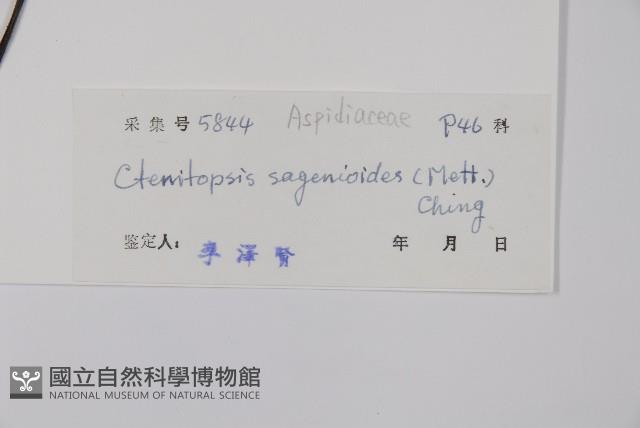 采集号 5844 Aspidiaceae P46 科
Ctenitopsis sagenioides (Mett.)
Ching
鉴定人: 李澤賢 年 月 日
國立自然科學博物館
NATIONAL MUSEUM OF NATURAL SCIENCE